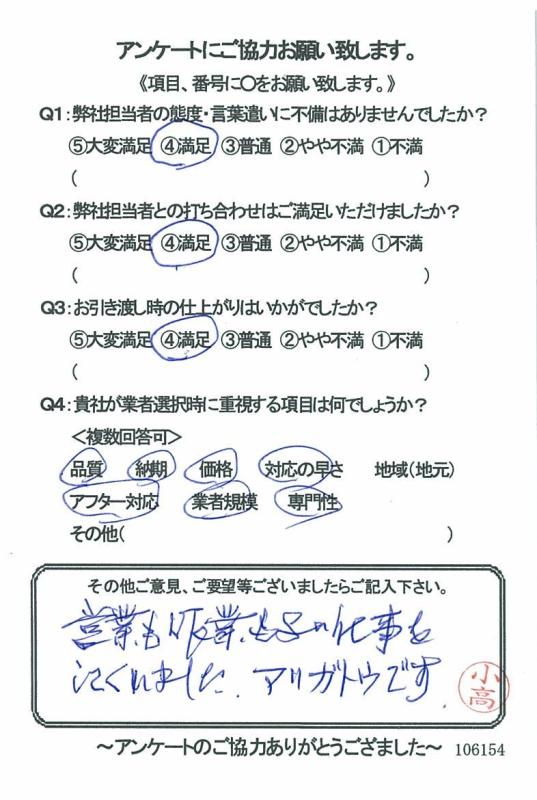 アンケートにご協力お願い致します。
《項目、番号に〇をお願い致します。》
Q1:弊社担当者の態度・言葉遣いに不備はありませんでしたか?
⑤大変満足 ④満足 ③普通 ②やや不満 ①不満
( )
Q2:弊社担当者との打ち合わせはご満足いただけましたか?
⑤大変満足 ④満足 ③普通 ②やや不満 ①不満
( )
Q3:お引き渡し時の仕上がりはいかがでしたか?
⑤大変満足 ④満足 ③普通 ②やや不満 ①不満
( )
Q4:貴社が業者選択時に重視する項目は何でしょうか?
<複数回答可>
品質 納期 価格 対応の早さ 地域(地元)
アフター対応 業者規模 専門性
その他( )
その他ご意見、ご要望等ございましたらご記入下さい。
営業も作業も の仕事を
してくれました。アリガトウです
小高
~アンケートのご協力ありがとうござました~ 106154